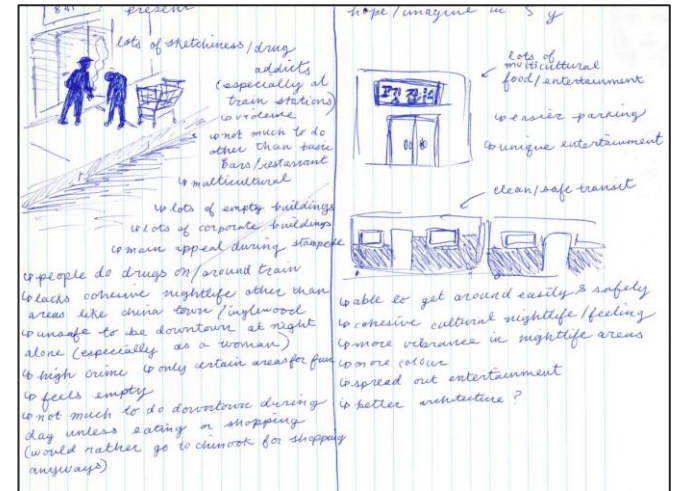 present
lots of sketchiness/drug
addicts
(especially at
train stations)
↳ violence
↳ not much to do
other than basic
bars/restarrant
↳ multicultural
↳ lots of empty buildings
↳ lots of corporate buildings
↳ main appeal during stampede
↳ people do drugs on/around train
↳ lacks cohesive nightlife other than
areas like china town/inglewood
↳ unsafe to be downtown at night
alone (especially as a woman)
↳ high crime ↳ only certain areas for fun
↳ feels empty
↳ not much to do downtown during
day unless eating or shopping
(would rather go to chinook for shopping
anyways)
hope/imagine in 5 y
lots of
multicultural
food/entertainment
↳ easier parking
↳ unique entertainment
clean/safe transit
↳ able to get around easily & safely
↳ cohesive cultural nightlife/feeling
↳ more vibrance in nightlife areas
↳ more colour
↳ spread out entertainment
↳ better architecture?